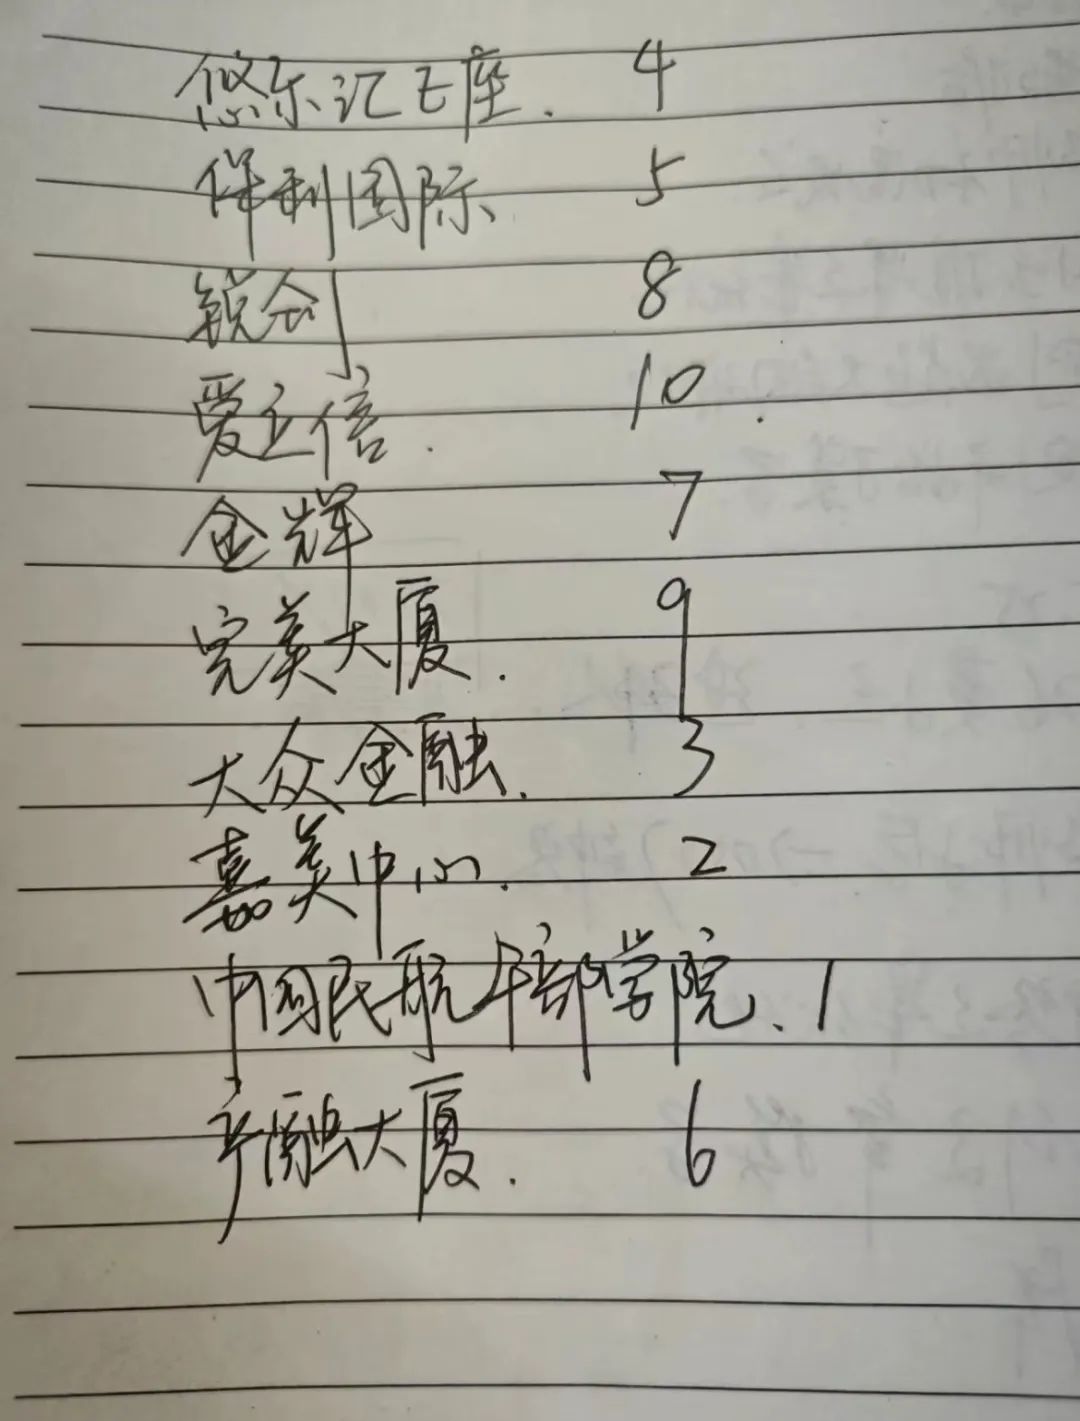 悠乐汇E座. 4
保利国际、 5
锐创 8
爱立信. 10.
金辉 7
完美大厦. 9
大众金融. 3
嘉美中心. 2
中国民航干部学院、1
产融大厦. 6